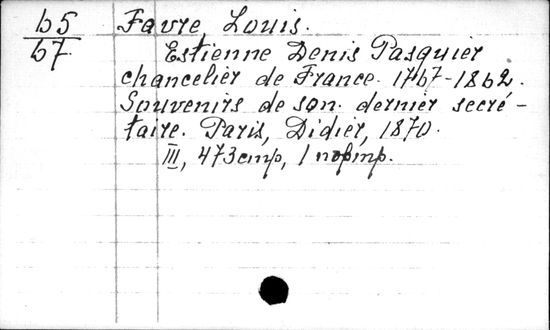 65
67
Favre Louis.
Estienne Denis Pasquier
chancelier de France. 1767-1862.
Souvenirs de son dernier secré-
taire. Paris, Didier, 1870.
III, 473 стр, 1